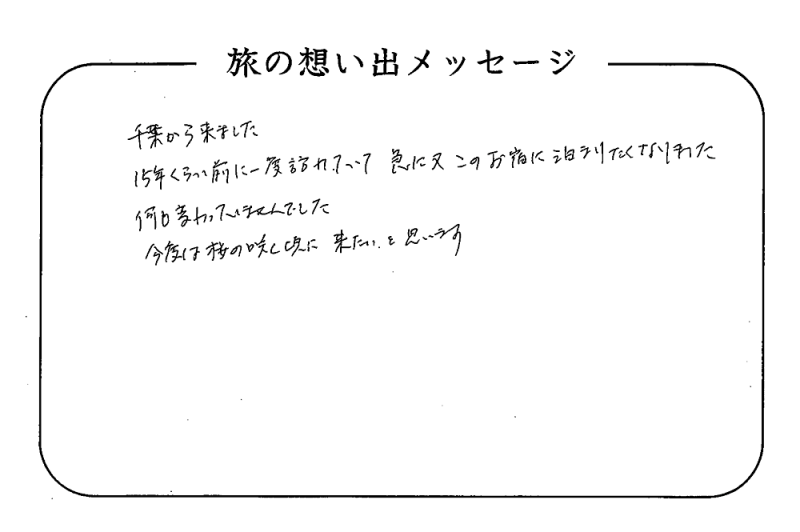 旅の想い出メッセージ
千葉から来ました
15年くらい前に一度訪れていて 急に又 このお宿に泊まりたくなりました
何も変わっていませんでした
今度は桜の咲く頃に 来たい と 思います